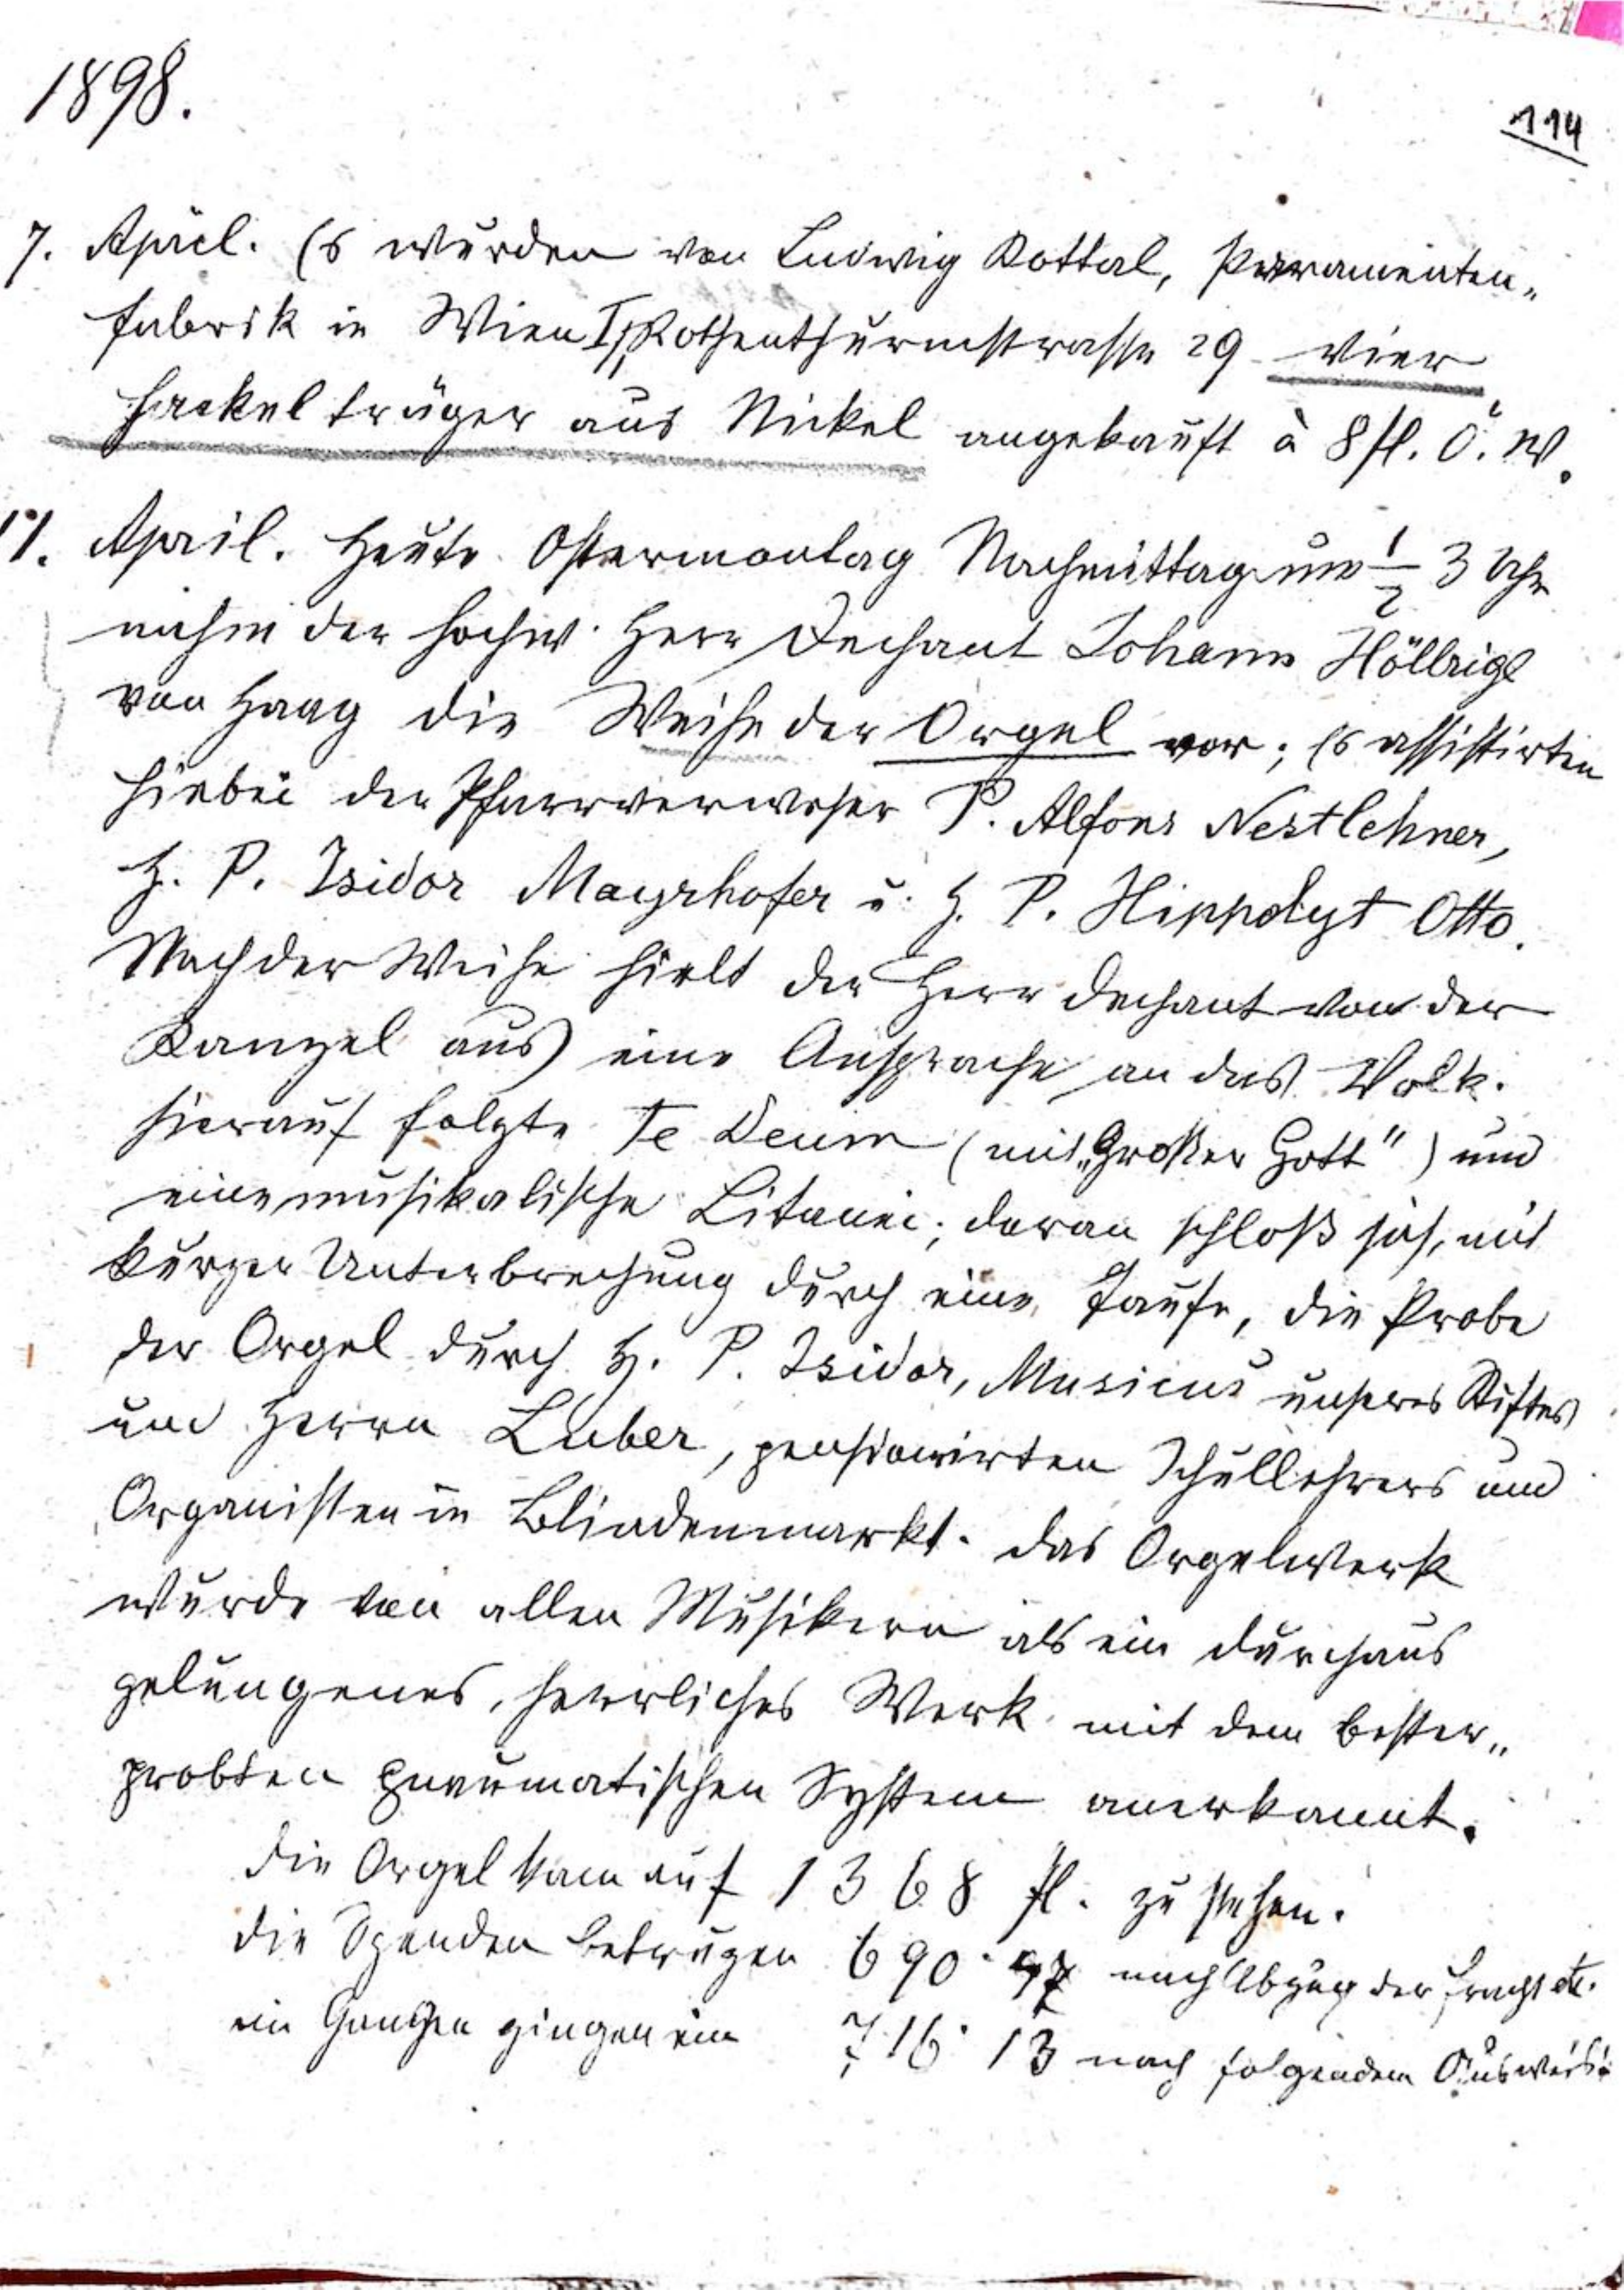 1898.
114
7. April. Es wurden von Ludwig Kottal, Paramenten„
fabrik in Wien I, Rothenthurmstrasse 29 vier
Fackelträger aus Nickel angekauft à 8 fl. Ö. W.
11. April. Heute Ostermontag Nachmittag um ½ 3 Uhr
nahm der hochw. Herr Dechant Johann Höllrigl
von Haag die Weihe der Orgel vor; Es assistirten
hiebei der Pfarrverweser P. Alfons Nestlehner,
H. P. Isidor Mayrhofer u. H. P. Hippolyt Otto.
Nach der Weihe hielt der Herr Dechant von der
Kanzel aus eine Ansprache an das Volk.
Hierauf folgte Te Deum (mit „Großer Gott") und
eine musikalische Litanei; daran schloß sich, mit
kurzer Unterbrechung durch eine Taufe, die Probe
der Orgel durch H. P. Isidor, Musicus unseres Stiftes
und Herrn Luber, pensionirten Schullehrers und
Organisten in Blindenmarkt. Das Orgelwerk
wurde von allen Musikern als ein durchaus
gelungenes, herrliches Werk mit dem bester„
probten pneumatischen System anerkannt.
Die Orgel kam auf 1368 fl. zu stehen.
Die Spenden betrugen 690· nach Abzug der Fracht etc.
im Ganzen gingen ein 716· 13 nach folgendem Ausweis: